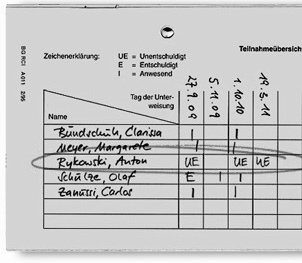 Teilnahmeübersich
Zeichenerklärung: UE = Unentschuldigt
E = Entschuldigt
I = Anwesend
BG RCI A011 2/95
Tag der Unter-
weisung 27.9.09 5.11.09 1.10.10 19.5.11
Name
Bündschuh, Clarissa I I
Meyer, Margarete I I
Rykowski, Anton UE UE UE
Schulze, Olaf E I I
Zanussi, Carlos I I